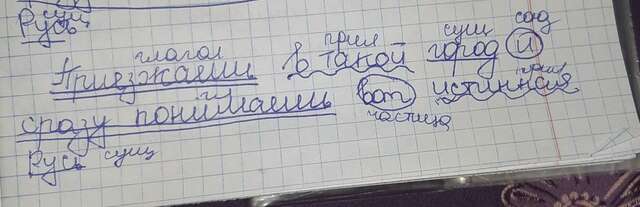 Русь сущ
глагол прил сущ сод
Приезжаешь в такой город и
гл прил
сразу понимаешь вот истинная
частица
Русь сущ